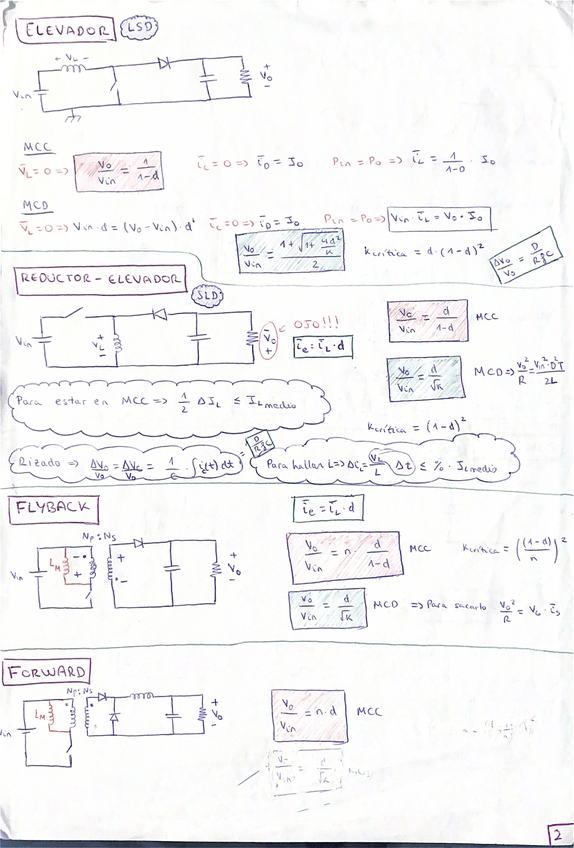 ELEVADOR LSD
+ VL -
Vin
+
Vo
-
MCC
V̄L = 0 => Vo/Vin = 1/(1-d) īc = 0 => īD = Io Pin = Po => īL = 1/(1-D) · Io
MCD
V̄L = 0 => Vin · d = (Vo - Vin) · d' īc = 0 => īD = Io Pin = Po => Vin · īL = Vo · Io
Vo/Vin = (1 + √(1 + 4d²/K))/2 Kcrítica = d · (1-d)² ΔVo/Vo = D/(RfC)
REDUCTOR - ELEVADOR
SLD
Vin
+
VL
-
-
Vo
+
<= OJO!!!
īe = īL · d
Vo/Vin = d/(1-d) MCC
Vo/Vin = d/√K MCD => Vo²/R = Vin² · D² T/2L
Para estar en MCC => 1/2 ΔIL ≤ ILmedio
Kcrítica = (1-d)²
Rizado => ΔVo/Vo = ΔVc/Vo = 1/C · ∫ic(t) dt = D/(RfC)
Para hallar L => ΔiL = VL/L Δt ≤ % · ILmedio
FLYBACK
īe = īL · d
Np : Ns
Vin
LM
- +
+ -
+
Vo
-
Vo/Vin = n · d/(1-d) MCC Kcrítica = ((1-d)/n)²
Vo/Vin = d/√K MCD => Para sacarlo Vo²/R = Vo · īs
FORWARD
Np : Ns
Vin
LM
+
Vo
-
Vo/Vin = n · d MCC
2